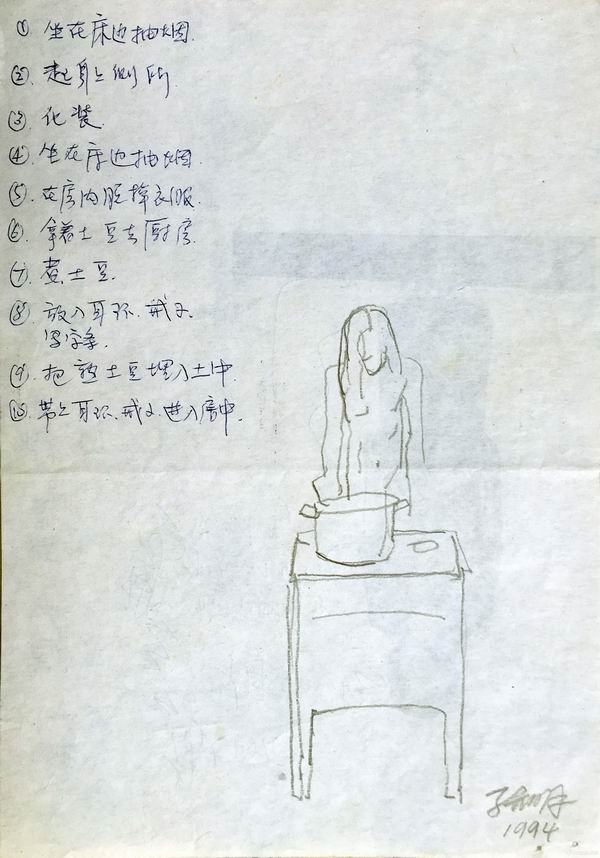 ① 坐在床边抽烟.
② 起身上厕所.
③ 化装.
④ 坐在床边抽烟.
⑤ 在房内脱掉衣服.
⑥ 拿着土豆去厨房.
⑦ 煮土豆.
⑧ 放入耳环.戒子.
写字条.
⑨ 把熟土豆埋入土中.
⑩ 带上耳环.戒子进入房中.
1994